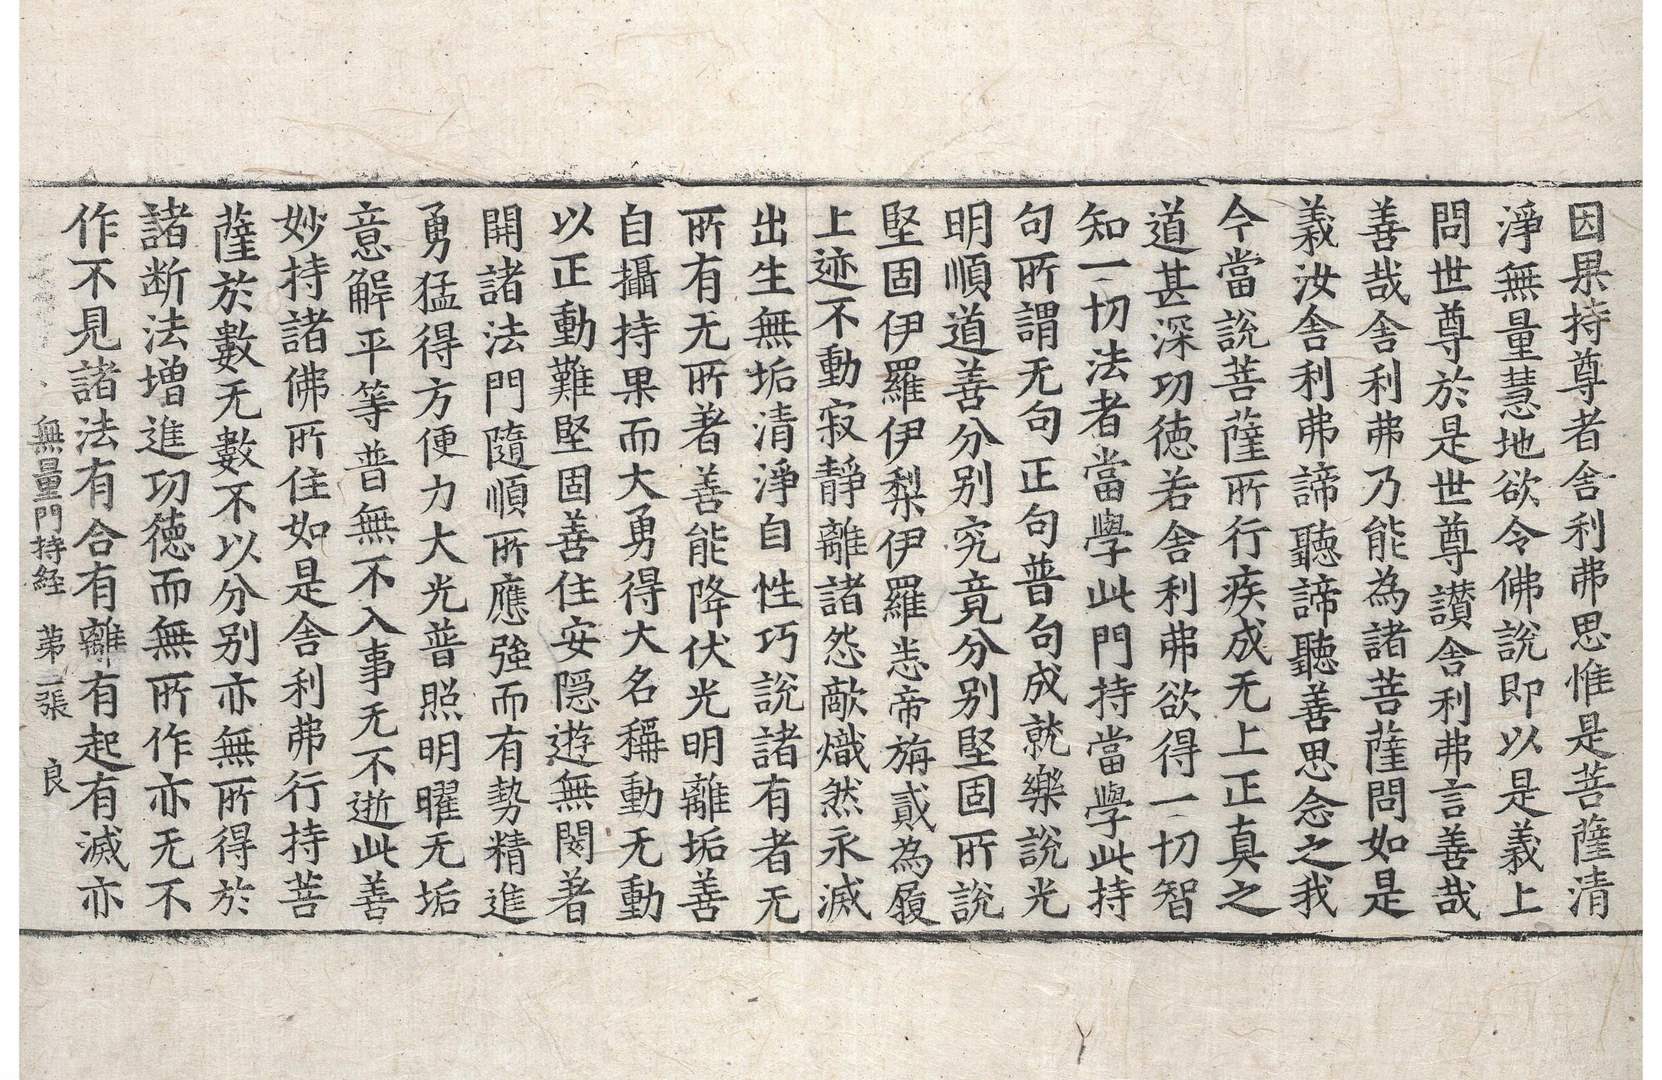 因果持尊者舎利弗思惟是菩薩清
淨無量慧地欲令佛說即以是義上
問世尊於是世尊讃舎利弗言善哉
善哉舎利弗乃能為諸菩薩問如是
義汝舎利弗諦聽諦聽善思念之我
今當說菩薩所行疾成无上正真之
道甚深功徳若舎利弗欲得一切智
知一切法者當學此門持當學此持
句所謂无句正句普句成就樂說光
明順道善分别究竟分别堅固所說
堅固伊羅伊梨伊羅恙帝旃貳為履
上迹不動寂靜離諸怨敵熾然永滅
出生無垢清淨自性巧說諸有者无
所有无所著善能降伏光明離垢善
自攝持果而大勇得大名稱動无動
以正動難堅固善住安隠遊無閡著
開諸法門隨順所應強而有勢精進
勇猛得方便力大光普照明曜无垢
意解平等普無不入事无不逝此善
妙持諸佛所住如是舎利弗行持菩
薩於數无數不以分别亦無所得於
諸断法增進功徳而無所作亦无不
作不見諸法有合有離有起有滅亦
無量門持経 苐二張 良